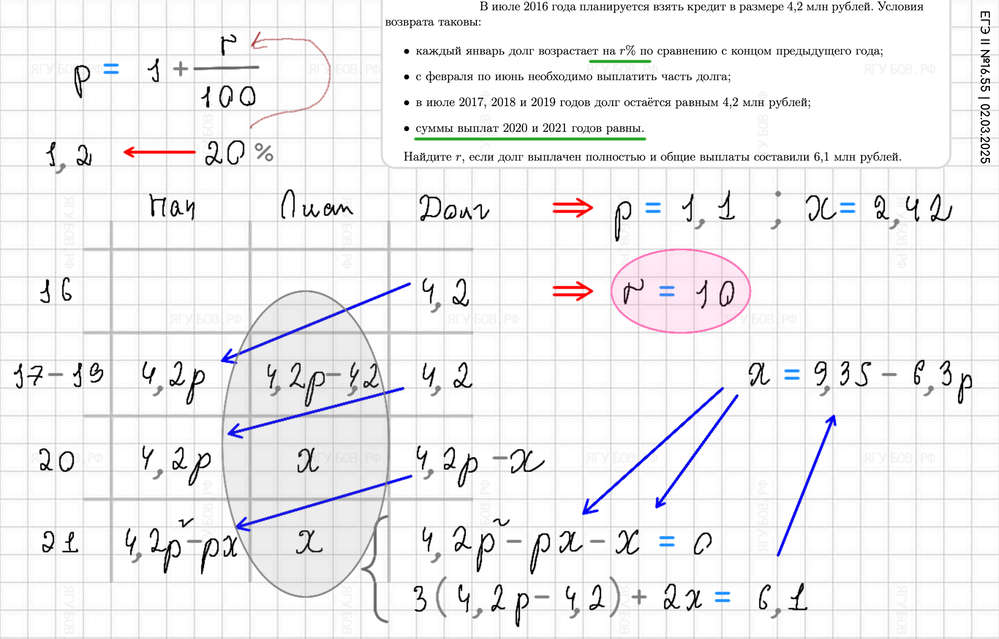 В июле 2016 года планируется взять кредит в размере 4,2 млн рублей. Условия
возврата таковы:
• каждый январь долг возрастает на r% по сравнению с концом предыдущего года;
• с февраля по июнь необходимо выплатить часть долга;
• в июле 2017, 2018 и 2019 годов долг остаётся равным 4,2 млн рублей;
• суммы выплат 2020 и 2021 годов равны.
Найдите r, если долг выплачен полностью и общие выплаты составили 6,1 млн рублей.
ЕГЭ II №16.55 | 02.03.2025
p = 1 + r/100
1,2 ← 20%
Нач Платл Долг
⇒ p = 1,1 ; x = 2,42
16 4,2
⇒ r = 10
17-19 4,2p 4,2p-4,2 4,2
x = 9,35 - 6,3p
20 4,2p x 4,2p - x
21 4,2p² - px x 4,2p² - px - x = 0
3(4,2p - 4,2) + 2x = 6,1
ЯГУБОВ.РФ